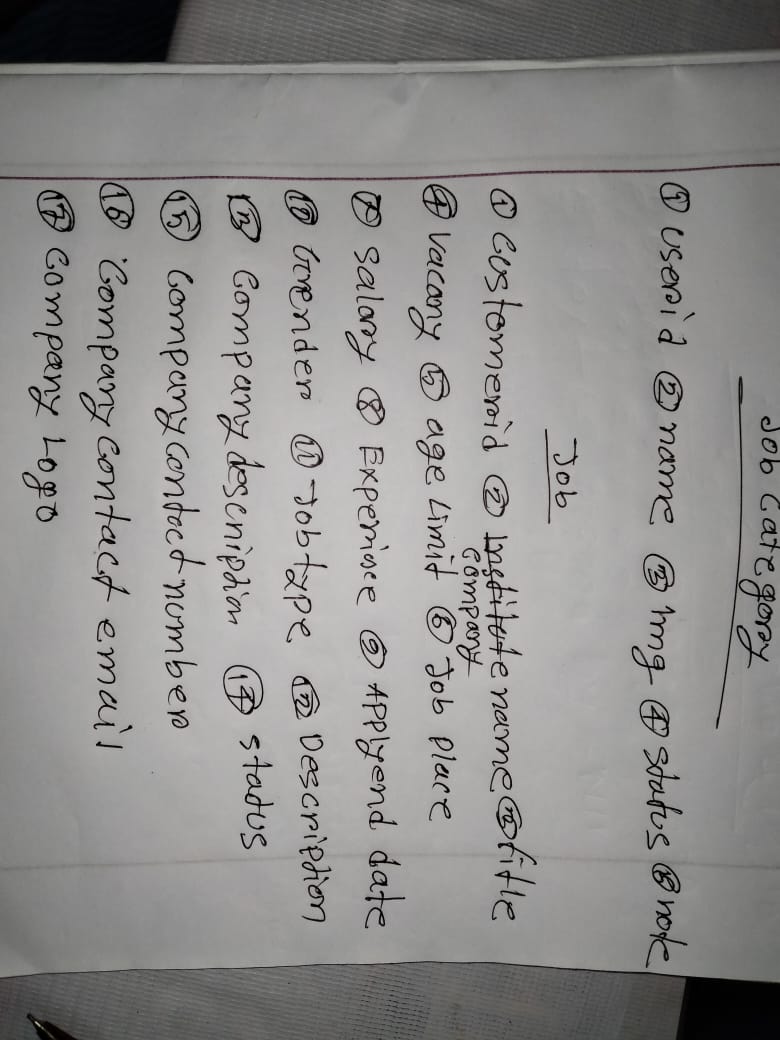 Job Category
① userid ② name ③ Img ④ status ⑤ note
Job
① Customerid ② Institute name ③ title
Company
④ Vacany ⑤ age Limit ⑥ Job place
⑦ Salary ⑧ Experince ⑨ APPlyend date
⑩ Gender ⑪ Jobtype ⑫ Description
⑬ Company description ⑭ status
⑮ Company contact number
⑯ Company contact email
⑰ Company Logo